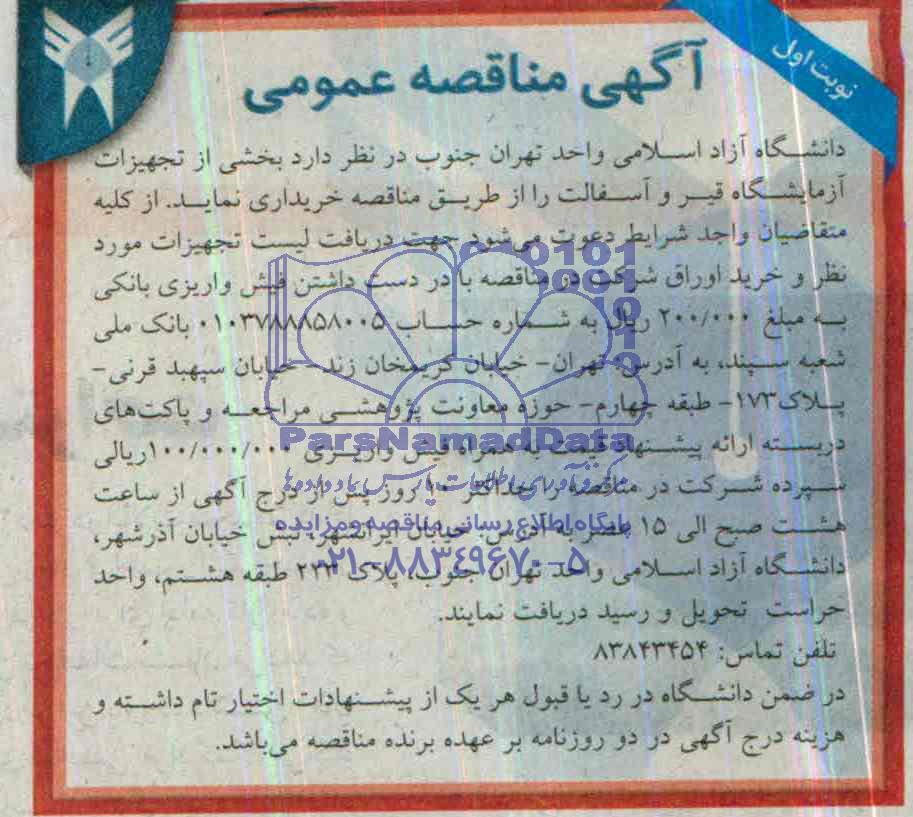 نوبت اول
آگهی مناقصه عمومی
دانشگاه آزاد اسلامی واحد تهران جنوب در نظر دارد بخشی از تجهیزات
آزمایشگاه قیر و آسفالت را از طریق مناقصه خریداری نماید. از کلیه
متقاضیان واجد شرایط دعوت می‌شود جهت دریافت لیست تجهیزات مورد
نظر و خرید اوراق شرکت در مناقصه با در دست داشتن فیش واریزی بانکی
به مبلغ ۲۰۰/۰۰۰ ریال به شماره حساب ۰۱۰۳۷۸۸۸۵۸۰۰۵ بانک ملی
شعبه سپند، به آدرس: تهران- خیابان کریمخان زند- خیابان سپهبد قرنی-
پلاک۱۷۳- طبقه چهارم- حوزه معاونت پژوهشی مراجعه و پاکت‌های
دربسته ارائه پیشنهاد قیمت به همراه فیش واریزی ۱۰۰/۰۰۰/۰۰۰ریالی
سپرده شرکت در مناقصه را حداکثر ۱۰ روز پس از درج آگهی از ساعت
هشت صبح الی ۱۵ عصر به آدرس: خیابان ایرانشهر، نبش خیابان آذرشهر،
دانشگاه آزاد اسلامی واحد تهران جنوب، پلاک ۲۲۳ طبقه هشتم، واحد
حراست تحویل و رسید دریافت نمایند.
تلفن تماس: ۸۳۸۴۳۴۵۴
در ضمن دانشگاه در رد یا قبول هر یک از پیشنهادات اختیار تام داشته و
هزینه درج آگهی در دو روزنامه بر عهده برنده مناقصه می‌باشد.
ParsNamadData
پایگاه اطلاع رسانی مناقصه و مزایده
۰۲۱-۸۸۳۴۹۶۷۰-۵